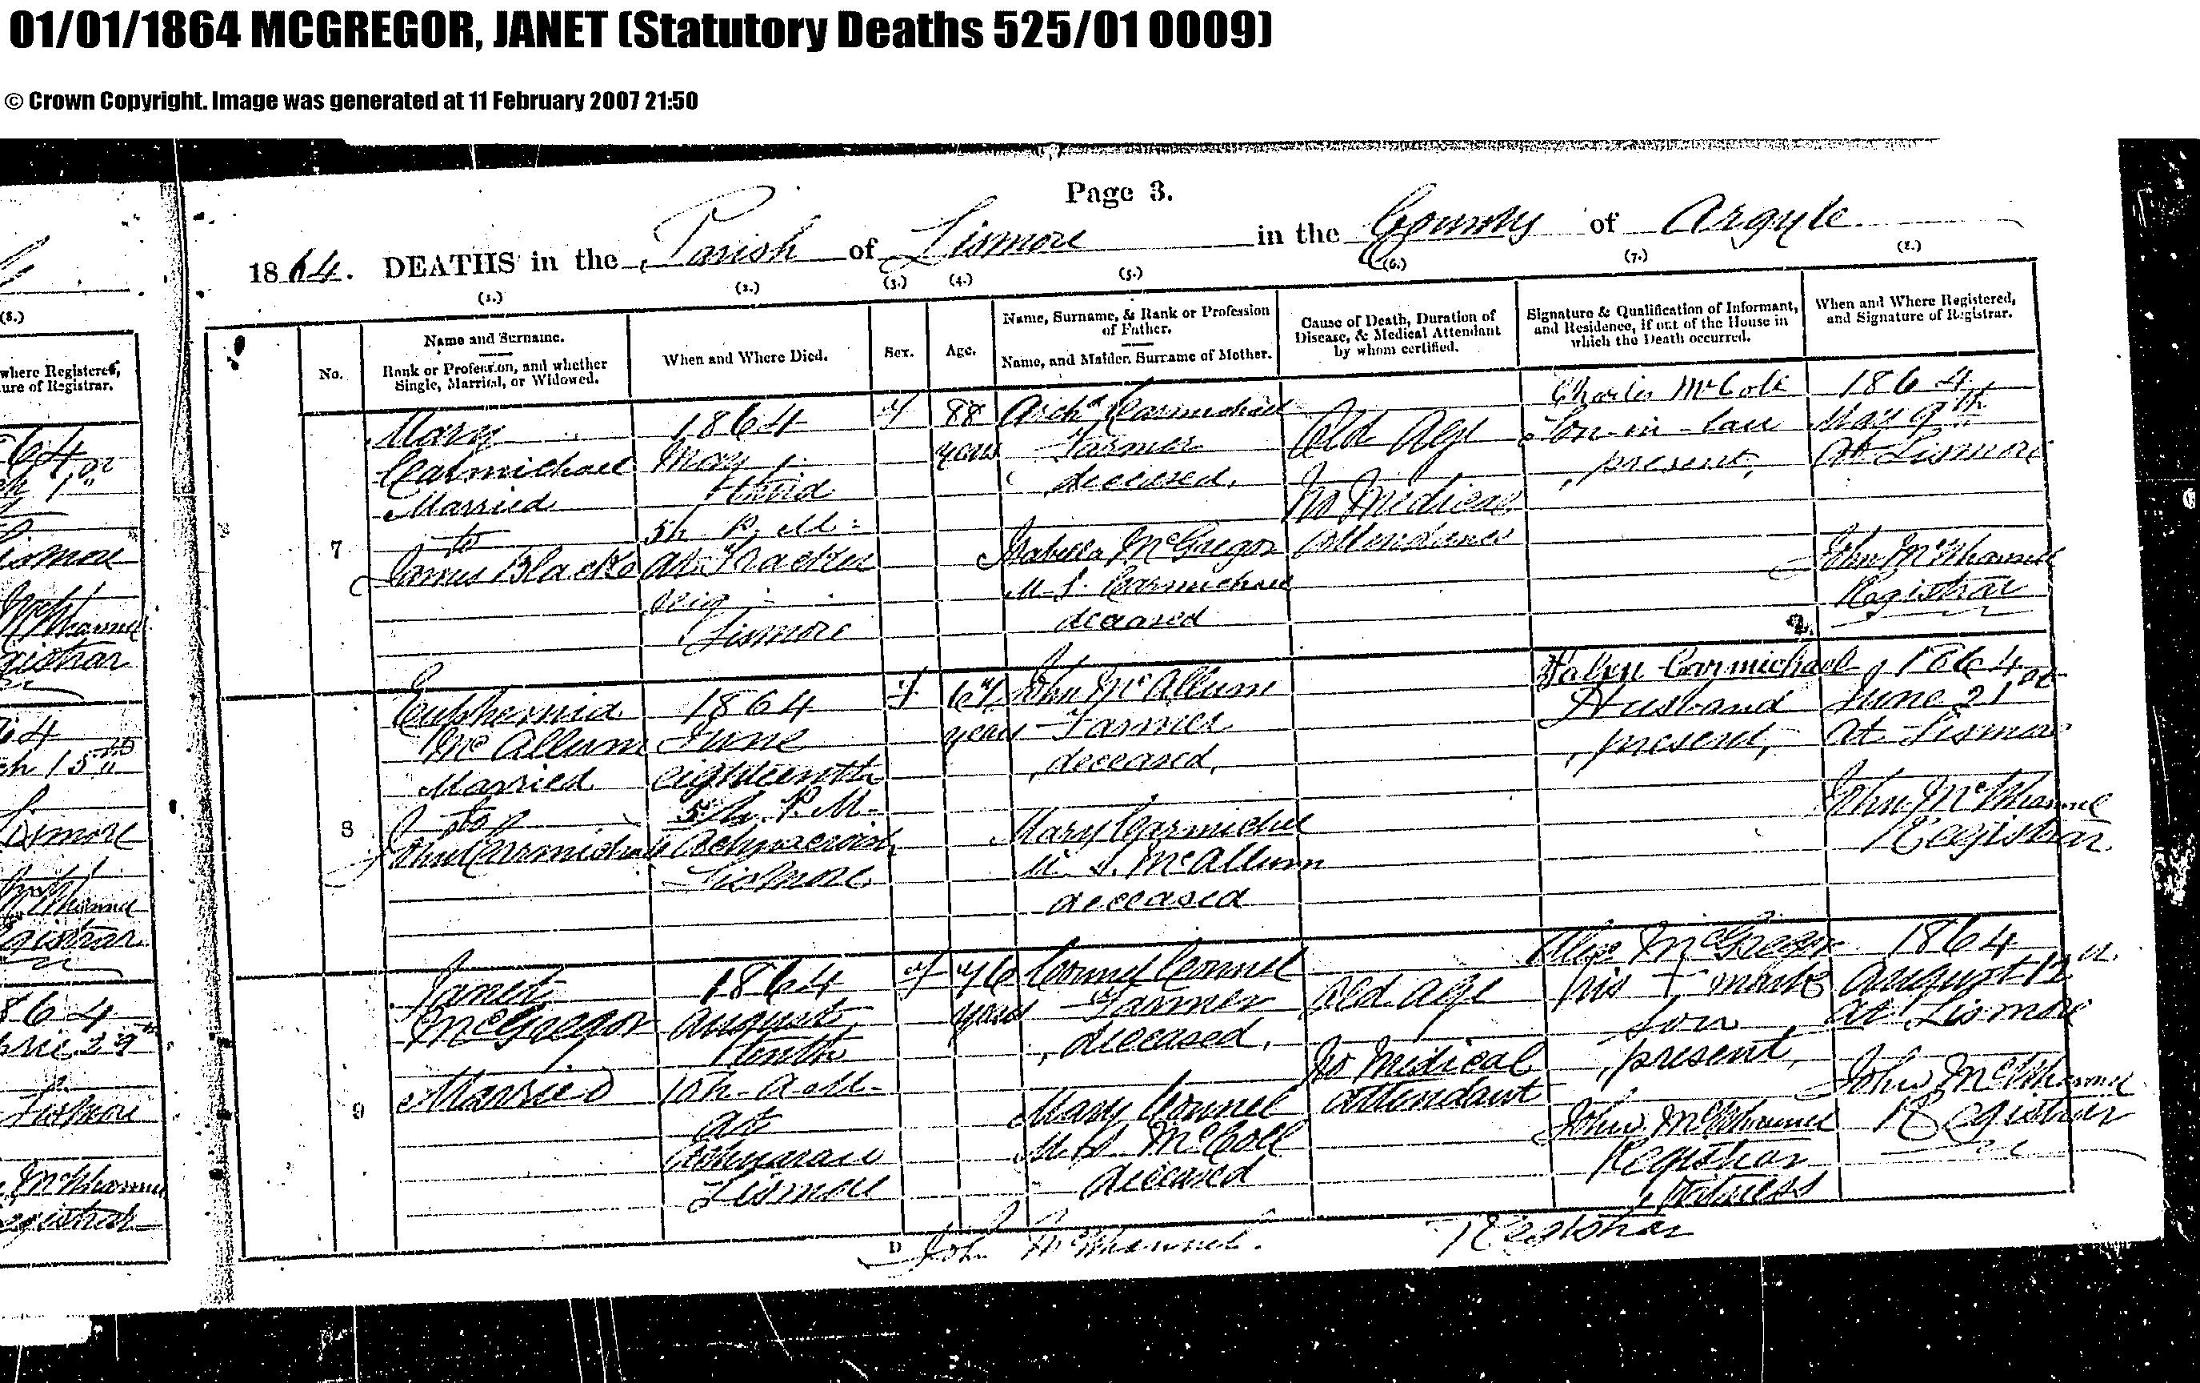 01/01/1864 MCGREGOR, JANET (Statutory Deaths 525/01 0009)
© Crown Copyright. Image was generated at 11 February 2007 21:50
Page 3.
1864. DEATHS in the Parish of Lismore in the County of Argyle
(1.) (2.) (3.) (4.) (5.) (6.) (7.) (8.)
No.
Name and Surname.
Rank or Profession, and whether
Single, Married, or Widowed.
When and Where Died.
Sex.
Age.
Name, Surname, & Rank or Profession
of Father.
Name, and Maiden Surname of Mother.
Cause of Death, Duration of
Disease, & Medical Attendant
by whom certified.
Signature & Qualification of Informant,
and Residence, if out of the House in
which the Death occurred.
When and Where Registered,
and Signature of Registrar.
7
Mary
Carmichael
Married
to
James Black
1864
May
third
5h. P. M.
at
Lismore
f
88
years
Archd Carmichael
Farmer
deceased,
Isabella McGregor
M. S. Carmichael
deceased
Old Age
No Medical
attendance
Charles McColl
Son-in-law
present,
1864
May 9th
at Lismore
John McWhannel
Registrar
8
Euphemia
McCallum
Married
to
John Carmichael
1864
June
eighteenth
5h. P. M.
Lismore
f
years
John McCallum
Farmer
deceased,
Mary Carmichel
M. S. McCallum
deceased
Carmichael
Husband
present,
1864
June 21st
at Lismore
John McWhannel
Registrar
9
Janet
McGregor
Married
1864
August
tenth
10h. A.M.
at
Lismore
f
76
years
Connel Connel
Farmer
deceased,
Mary Connel
M. S. McColl
deceased
Old age
No Medical
attendant
Alex McGregor
his + mark
son
present,
John McWhannel
Registrar
witness
1864
August 12
at Lismore
John McWhannel
Registrar
D
John McWhannel. Registrar